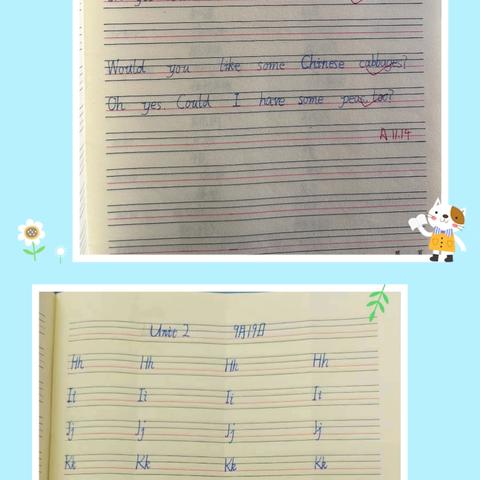 Would you like some Chinese cabbages?
Oh yes. Could I have some peas, too?
A 11.14
Unit 2 9月19日
Hh Hh Hh Hh
Ii Ii Ii Ii
Jj Jj Jj Jj
Kk Kk Kk Kk